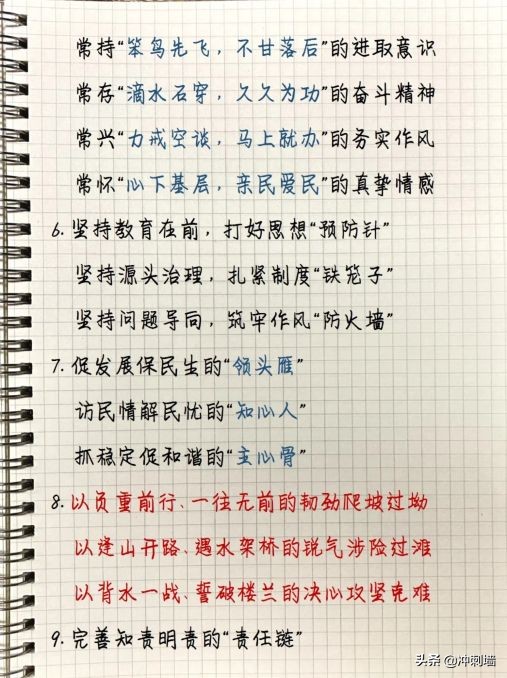 常持“笨鸟先飞，不甘落后”的进取意识
常存“滴水石穿，久久为功”的奋斗精神
常兴“力戒空谈，马上就办”的务实作风
常怀“心下基层，亲民爱民”的真挚情感
6. 坚持教育在前，打好思想“预防针”
坚持源头治理，扎紧制度“铁笼子”
坚持问题导向，筑牢作风“防火墙”
7. 促发展保民生的“领头雁”
访民情解民忧的“知心人”
抓稳定促和谐的“主心骨”
8. 以负重前行、一往无前的韧劲爬坡过坳
以逢山开路、遇水架桥的锐气涉险过滩
以背水一战、誓破楼兰的决心攻坚克难
9. 完善知责明责的“责任链”
头条 @冲刺墙